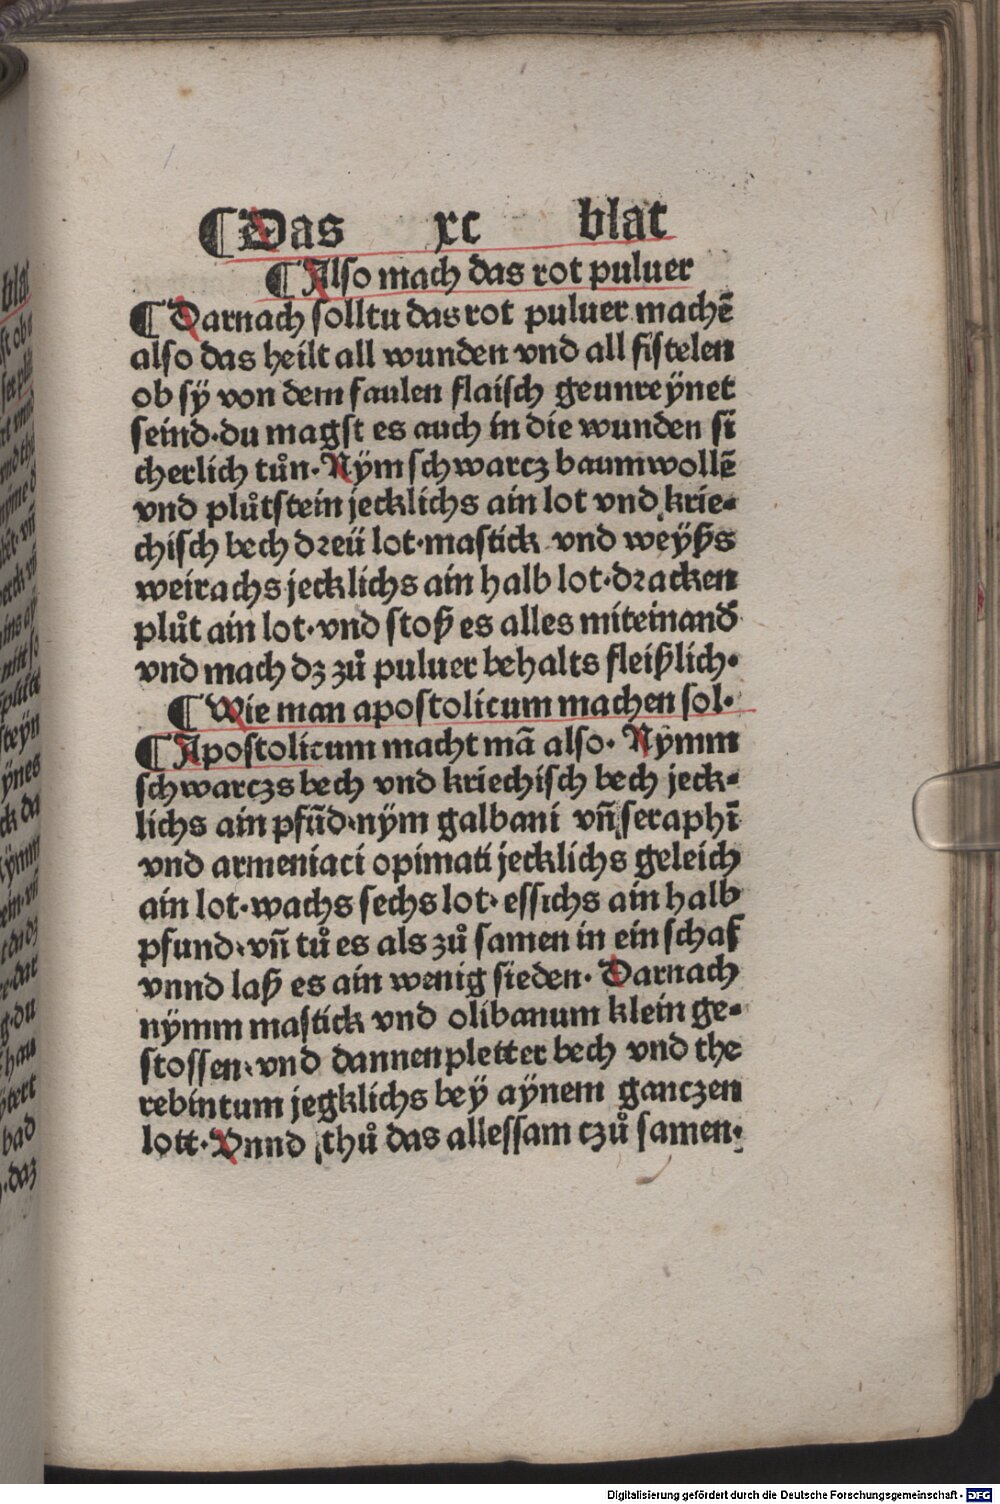 ¶Das xc blat
¶Also mach das rot puluer
¶Darnach solltu das rot puluer machē
also das heilt all wunden vnd all fistelen
ob sÿ von dem faulen flaisch geunreÿnet
seind·du magst es auch in die wunden si
cherlich tůn·Nÿm schwarcz baumwollē
vnd plůtstein jecklichs ain lot vnd krie⸗
chisch bech dreü lot·mastick vnd weÿßs
weirachs jecklichs ain halb lot·dracken
plůt ain lot·vnd stoß es alles miteinand̄
vnd mach dz zů puluer behalts fleißlich·
¶Wie man apostolicum machen sol·
¶Apostolicum macht mā also·Nÿmm
schwarczs bech vnd kriechisch bech jeck⸗
lichs ain pfūd·nÿm galbani vn̄ seraphī
vnd armeniaci opimati jecklichs geleich
ain lot·wachs sechs lot·essichs ain halb
pfund·vn̄ tů es als zů samen in ein schaf
vnnd laß es ain wenig sieden·Darnach
nÿmm mastick vnd olibanum klein ge⸗
stossen·vnd dannenpletter bech vnd the
rebintum jegklichs beÿ aÿnem ganczen
lott·Vnnd thů das allessam czů samen·
Digitalisierung gefördert durch die Deutsche Forschungsgemeinschaft - DFG